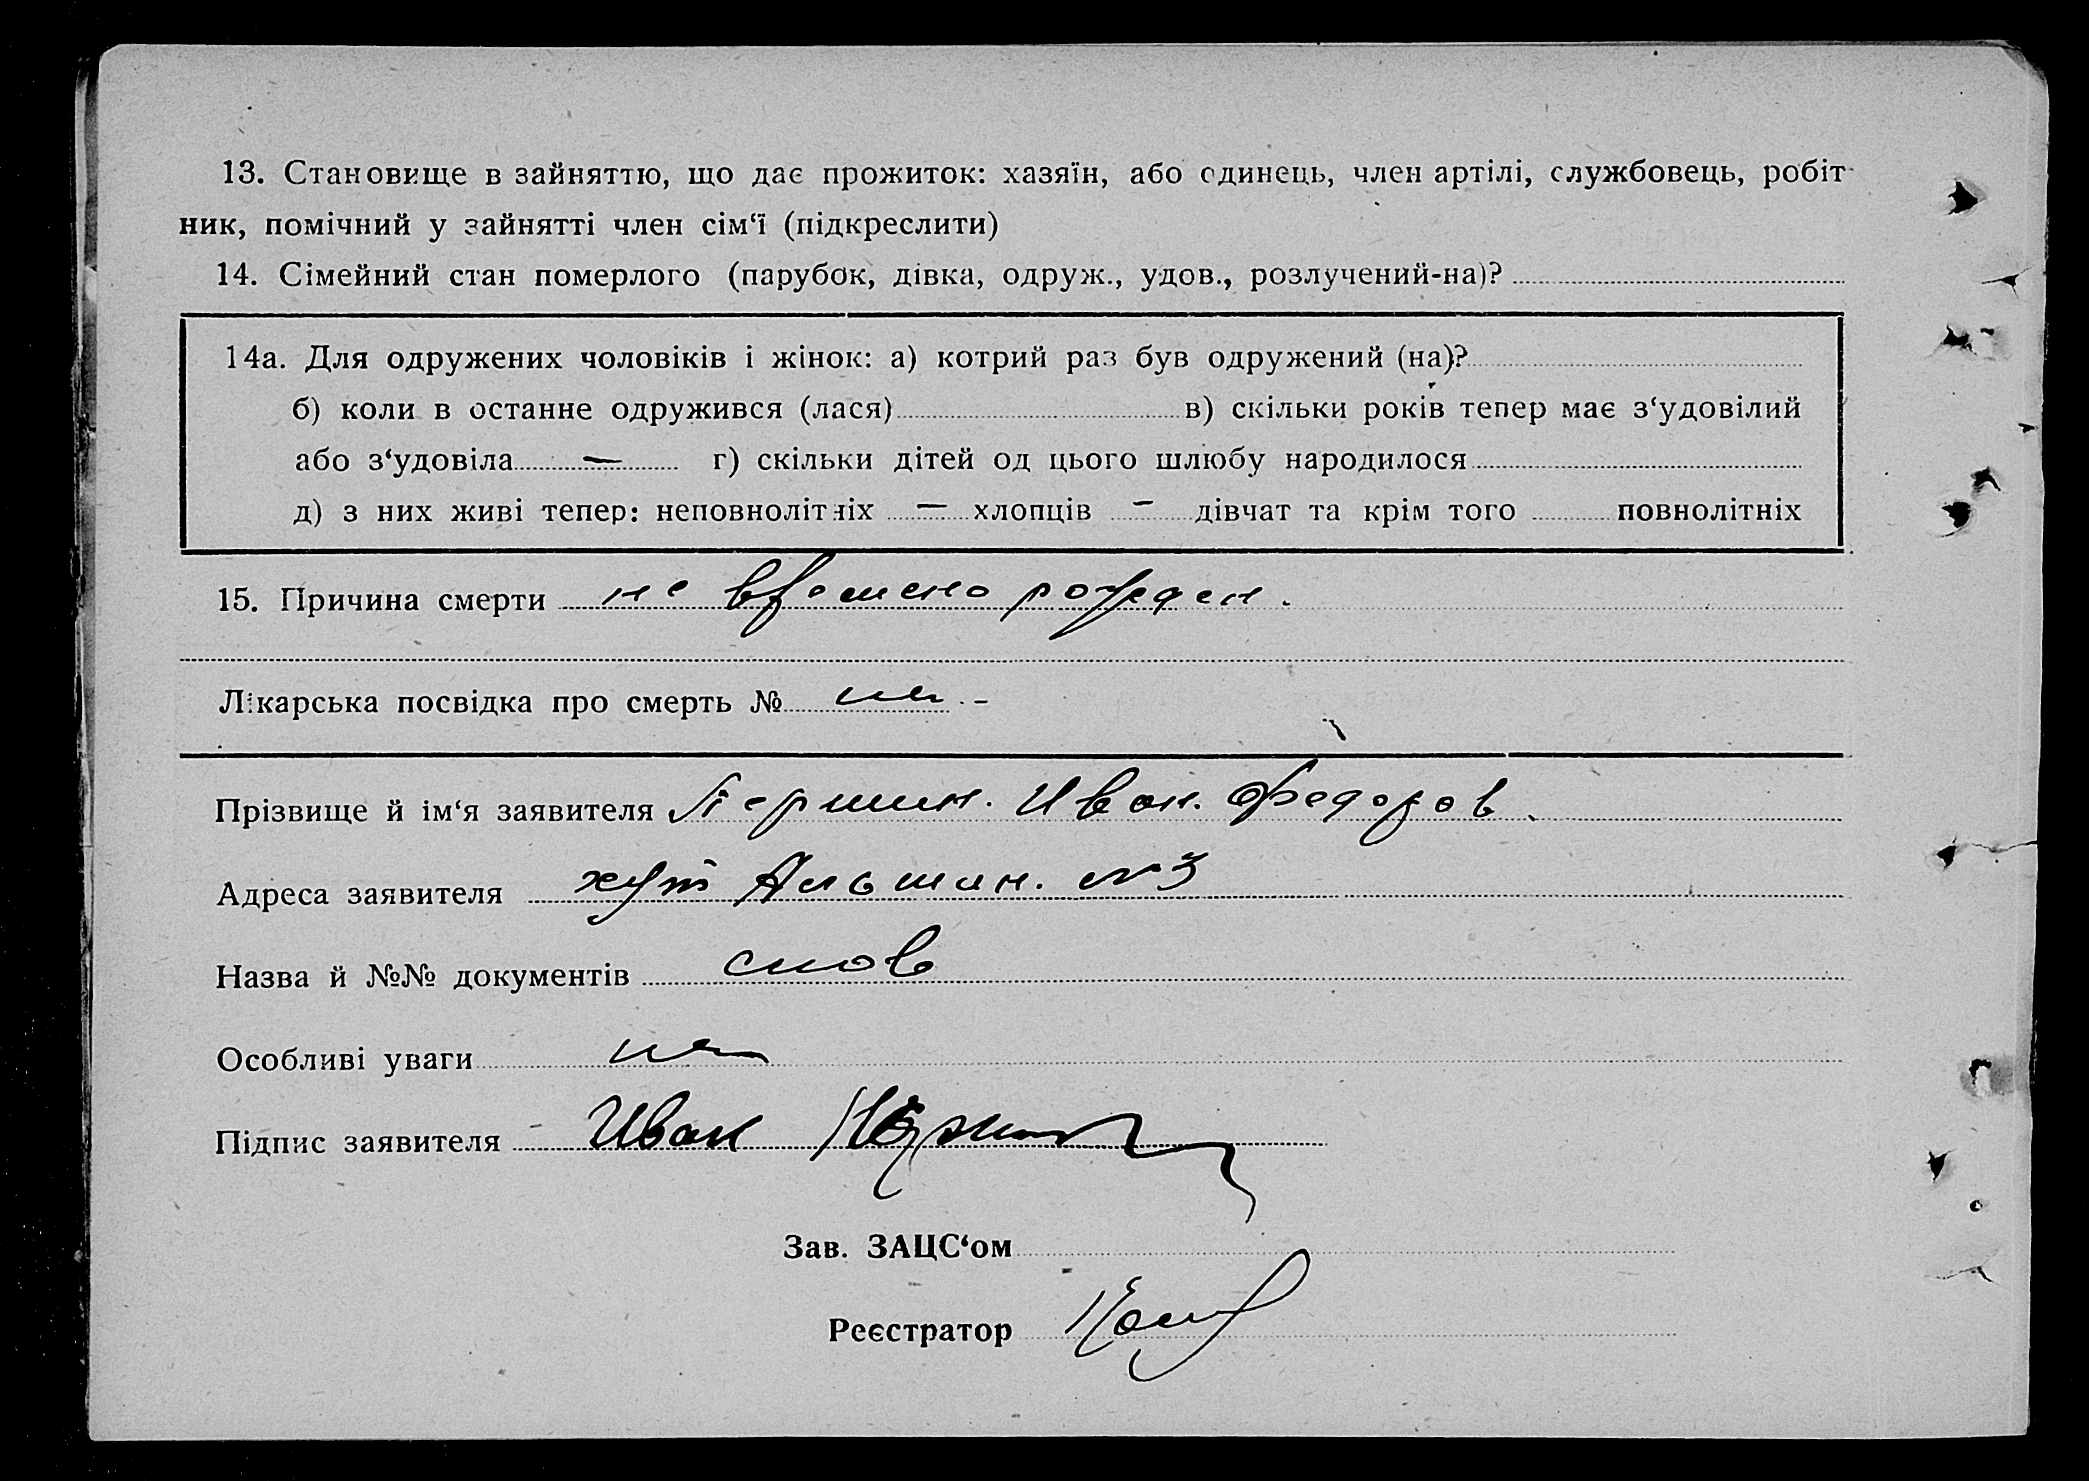 13. Становище в зайняттю, що дає прожиток: хазяїн, або одинець, член артілі, службовець, робіт-
ник, помічний у зайнятті член сім‘ї (підкреслити)
14. Сімейний стан померлого (парубок, дівка, одруж., удов., розлучений-на)?
14а. Для одружених чоловіків і жінок: а) котрий раз був одружений (на)?
б) коли в останне одружився (лася) в) скільки років тепер має з‘удовілий
або з‘удовіла — г) скільки дітей од цього шлюбу народилося
д) з них живі тепер: неповнолітніх — хлопців — дівчат та крім того повнолітніх
15. Причина смерти не времено рожден.
Лікарська посвідка про смерть №
Прізвище й ім‘я заявителя Першин. Иван. Федоров.
Адреса заявителя хут Альшан. №3
Назва й №№ документів слов
Особливі уваги
Підпис заявителя Иван
Зав. ЗАЦС‘ом
Реєстратор